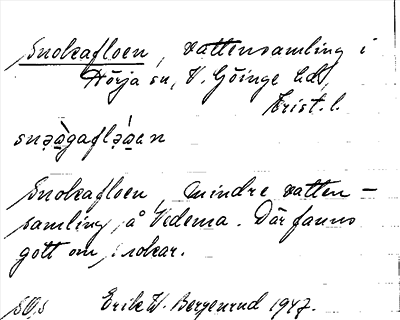 Snokafloen, vattensamling i
Hörja sn, V. Göinge hd,
Krist. l.
snəà̱gaflə́a̱en
Snokafloen, mindre vatten-
samling på Vedema. Där fanns
gott om snokar.
Erik W. Bergenrud 1947.